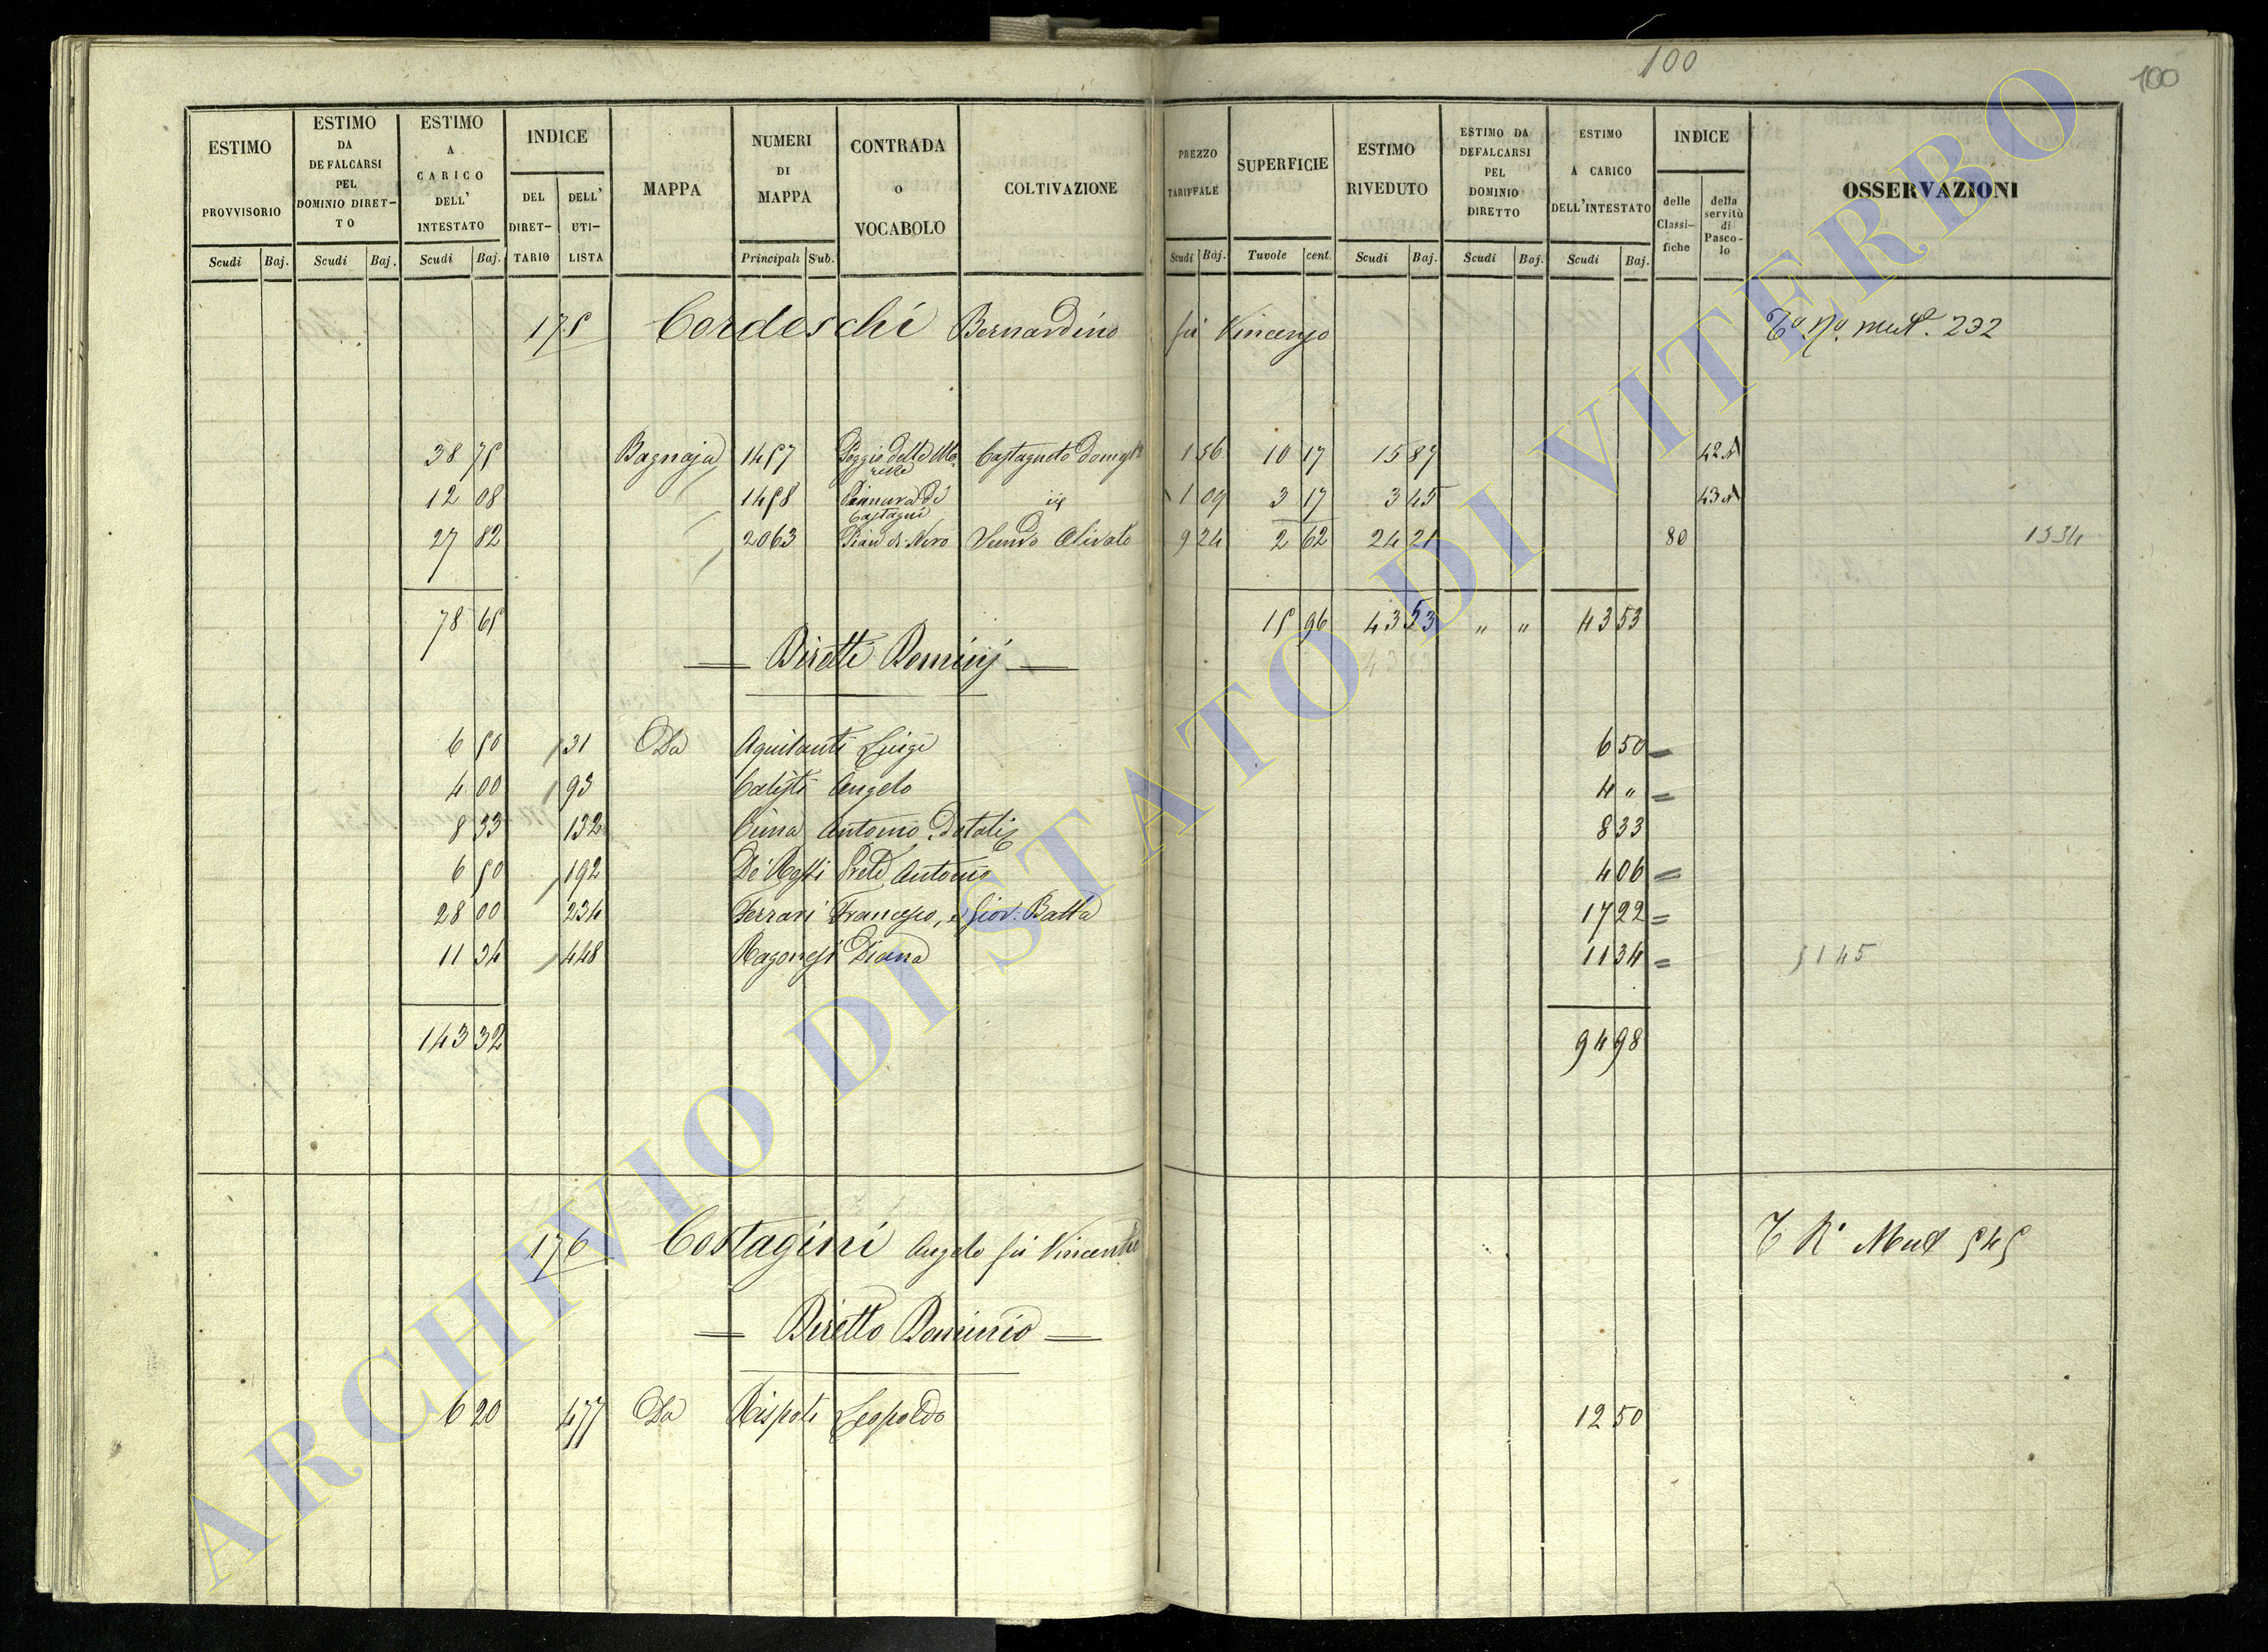 100
100
ESTIMO PROVVISORIO
ESTIMO DA DEFALCARSI PEL DOMINIO DIRET-TO
ESTIMO A CARICO DELL' INTESTATO
INDICE
DEL DIRET-TARIO
DELL' UTI-LISTA
MAPPA
NUMERI DI MAPPA
CONTRADA o VOCABOLO
COLTIVAZIONE
PREZZO TARIFFALE
SUPERFICIE
ESTIMO RIVEDUTO
ESTIMO DA DEFALCARSI PEL DOMINIO DIRETTO
ESTIMO A CARICO DELL'INTESTATO
INDICE
delle Classi-fiche
della servitù di Pasco-lo
OSSERVAZIONI
Scudi Baj. Scudi Baj. Scudi Baj. Principali Sub. Scudi Baj. Tavole cent. Scudi Baj. Scudi Baj. Scudi Baj.
175 Cordeschi Bernardino fù Vincenzo mut. 232
38 75 Bagnaja 1457 Poggio delle Castagneto domes 1 56 10 17 15 87 42
12 08 1458 Pianura de Castagni id 1 09 3 17 3 45 43
27 82 2063 Pian di Nero Olivato 9 24 2 62 24 21 80 1334
78 65 15 96 43 53 " " 43 53
Diretti Dominj
6 50 31 Da Aquilanti Luigi 6 50
4 00 93 Calisti Angelo 4 "
8 33 132 Cima Antonio 8 33
6 50 192 De Prete Antonio 4 06
28 00 234 Ferrari Francesco, e Giov: Batta 17 22
11 34 448 Ragonesi Diana 11 34 5145
143 32 94 98
176 Costagini Angelo fù Vincenzo Mut 545
Diretto Dominio
6 20 477 Da Rispoli Leopoldo 12 50
ARCHIVIO DI STATO DI VITERBO